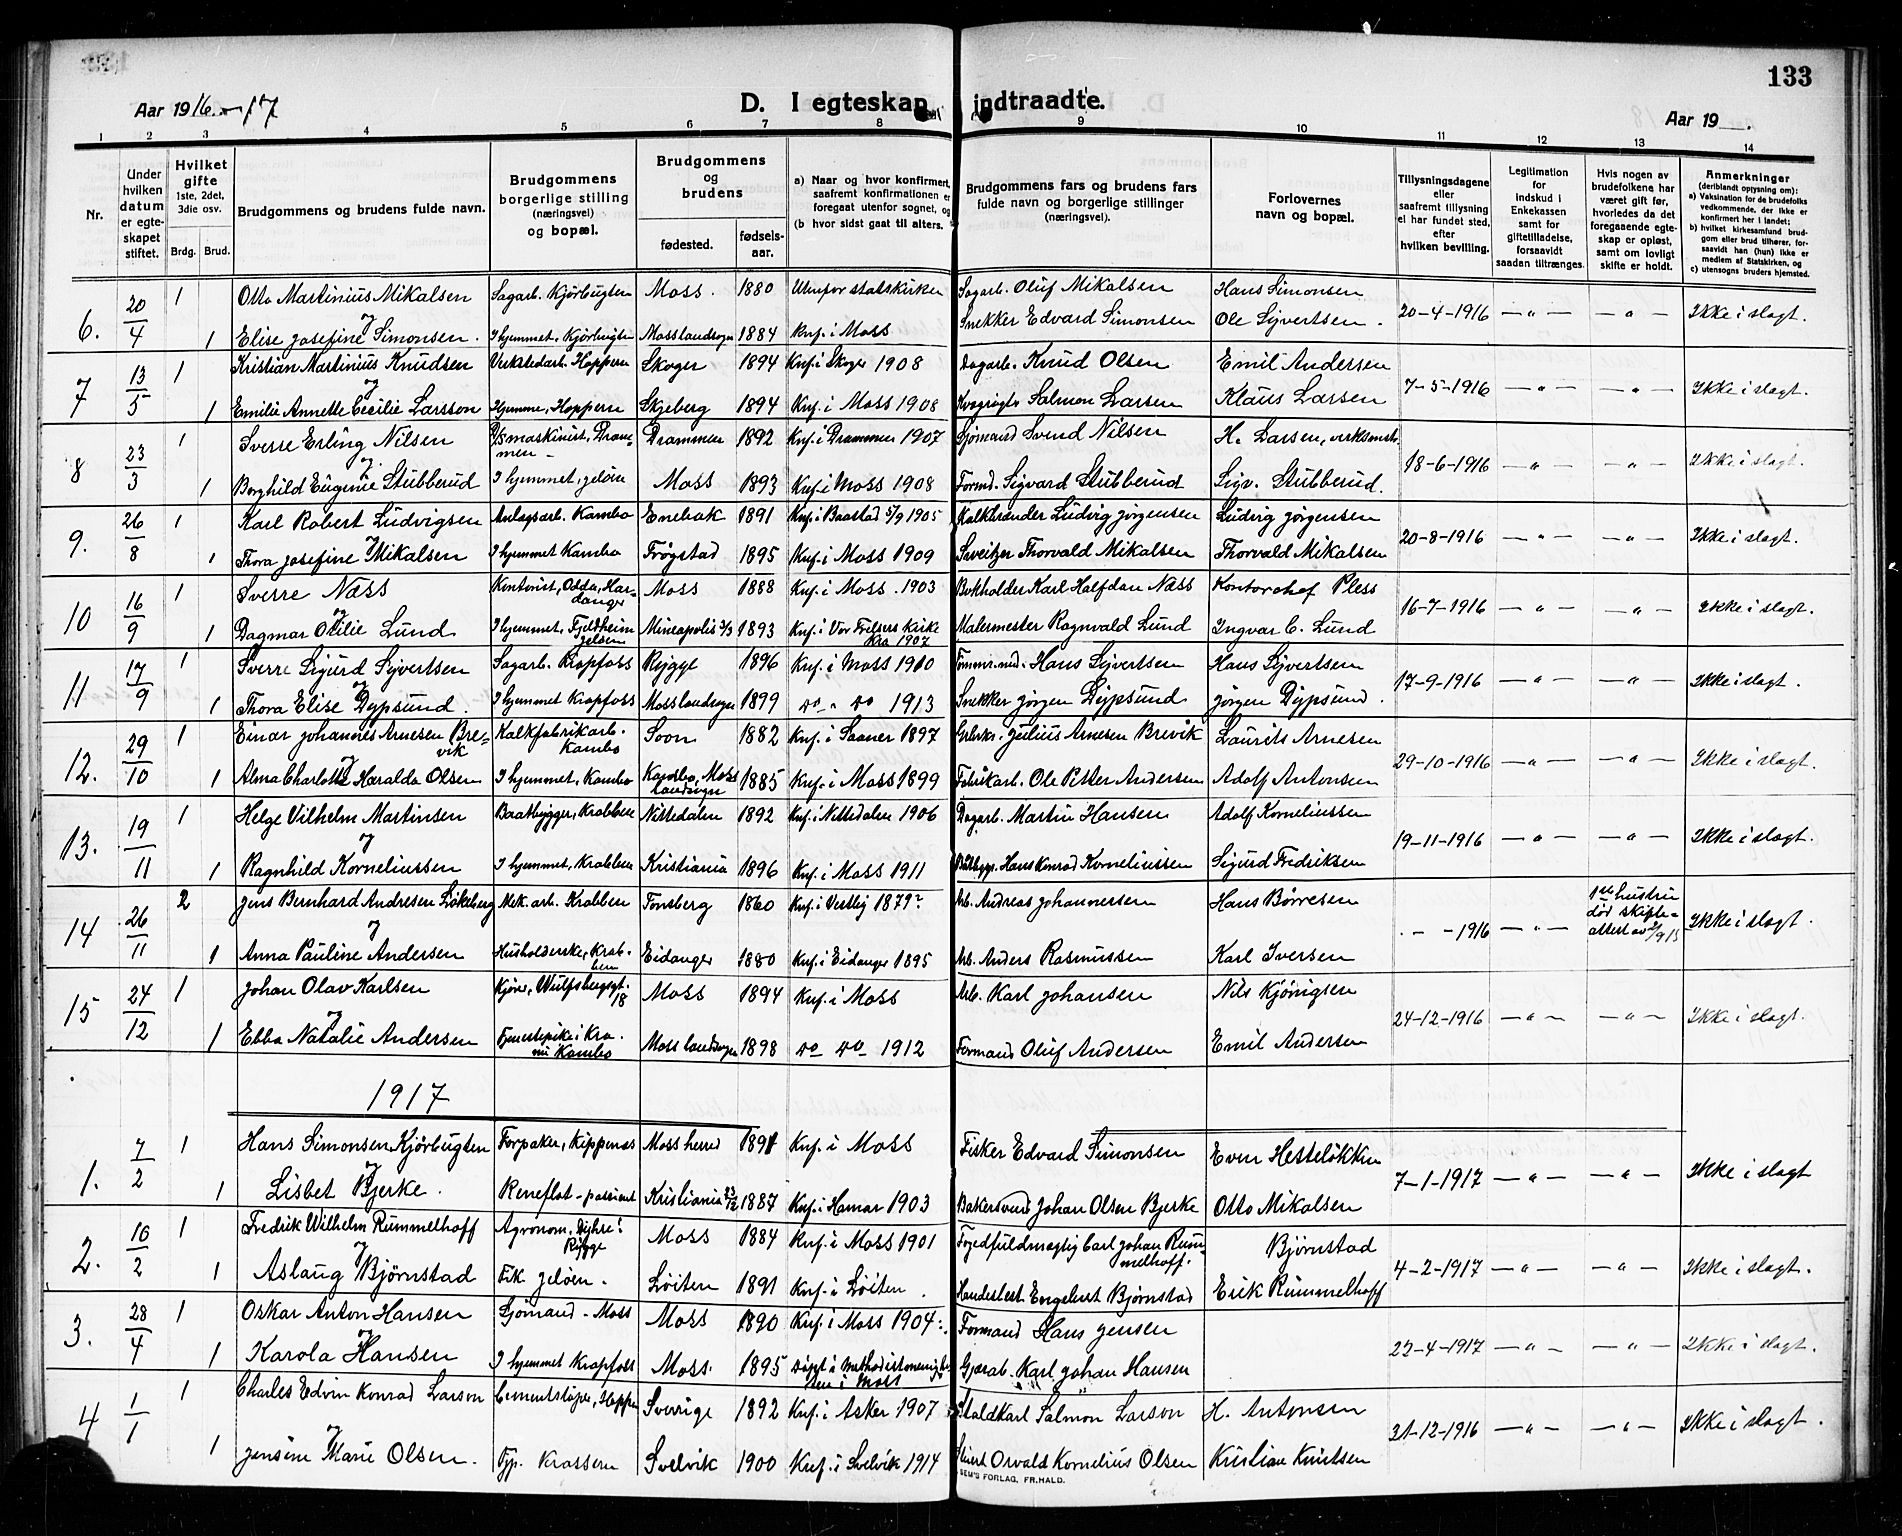 133
Aar 1916 - 17
D. I egteskap indtraadte.
Aar 19
1 2 3 4 5 6 7 8 9 10 11 12 13 14
Nr.
Under hvilken datum er egteskapet stiftet.
Hvilket gifte 1ste, 2det, 3die osv.
Brdg. Brud.
Brudgommens og brudens fulde navn.
Brudgommens borgerlige stilling (næringsvei) og bopæl.
Brudgommens og brudens
fødested. fødsels-aar.
a) Naar og hvor konfirmert, saafremt konfirmationen er foregaat utenfor sognet, og
(b hvor sidst gaat til alters.
Brudgommens fars og brudens fars fulde navn og borgerlige stillinger (næringsvei).
Forlovernes navn og bopæl.
Tillysningsdagene eller saafremt tillysning ei har fundet sted, efter hvilken bevilling.
Legitimation for Indskud i Enkekassen samt for giftetilladelse, forsaavidt saadan tiltrænges.
Hvis nogen av brudefolkene har været gift før, hvorledes da det foregaaende egteskap er opløst, samt om lovligt skifte er holdt.
Anmerkninger (deriblandt oplysning om):
a) Vaksination for de brudefolks vedkommende, der ikke er konfirmert her i landet;
b) hvilket kirkesamfund brudgom eller brud tilhører, forsaavidt han (hun) ikke er medlem af Statskirken, og
c) utensogns bruders hjemsted.
6. 20/4 1 Otto Martinius Mikalsen Sagarb. Kjørbugten Moss. 1880 Utenfor statskirken Sagarb. Oluf Mikalsen Hans Simonsen 20-4-1916 — " — — " — Ikke i slagt.
og
1 Elise Josefine Simonsen. I hjemmet, Kjørbugten Mosslandsogn 1884 Knf. i Moss Snekker Edvard Simonsen Ole Sivertsen.
7 13/5 1 Kristian Martinius Knudsen Verkstedarb. Hoppern Skoger 1894 Knf. i Skoger 1908 Dagarb. Knud Olsen Emil Andersen 7-5-1916 — " — — " — Ikke i slagt.
og
1 Emilie Annette Cecilie Larsson Hjemme, Hoppern Skjeberg 1894 Knf. i Moss 1908 Salmon Larsen Klaus Larsen
8 23/3 1 Sverre Erling Nilsen D/S maskinist, Drammen Drammen 1892 Knf. i Drammen 1907 Sjömand Svend Nilsen H. Larsen, 18-6-1916 — " — — " — Ikke i slagt.
og
1 Borghild Eugenie Stubberud I hjemmet, Jeløen Moss 1893 Knf. i Moss 1908 Formd. Sigvard Stubberud Sigv. Stubberud.
9. 26/8 1 Karl Robert Ludvigsen Anlagsarb. Kambo Enebak 1891 Knf. i Baastad 5/9 1905 Kalkbrænder Ludvig Jørgensen Ludvig Jørgensen 20-8-1916 — " — — " — Ikke i slagt.
og
1 Thora Josefine Mikalsen I hjemmet Kambo Frøgstad 1895 Knf. i Moss 1909 Sveitzer Thorvald Mikalsen Thorvald Mikalsen
10 16/9 1 Sverre Næss Kontorist, Odda, Hardanger Moss 1888 Knf. i Moss. 1903 Bokholder Karl Halfdan Næss Kontorchef Pless 16-7-1916 — " — — " — Ikke i slagt.
og
1 Dagmar Otilie Lund I hjemmet, Fjeldheim Jeløen Mineapolis 1893 Knf. i Vor Frelsers Kirke Kra 1907 Malermester Ragnvald Lund Ingvar C. Lund
11 17/9 1 Sverre Sigurd Syvertsen Sagarb. Krapfoss Rygge 1896 Knf. i Moss 1910 Tømmermd. Hans Syvertsen Hans Syvertsen 17-9-1916 — " — — " — Ikke i slagt.
og
1 Thora Elise Dypsund. I hjemmet Krapfoss Mosslandsogn 1899 do " do 1913 Snekker Jørgen Dypsund Jørgen Dypsund.
12. 29/10 1 Einar Johannes Arnesen Brevik Kalkfabrikarb. Kambo Soon 1882 Knf. i Saaner 1897 Julius Arnesen Brevik Laurits Arnesen 29-10-1916 — " — — " — Ikke i slagt.
og
1 Alma Charlotte Haralda Olsen I hjemmet, Kambo Kambo, Moss landsogn 1885 Knf. i Moss 1899 Fabrikarb. Ole Petter Andersen Adolf Antonsen
13. 19/11 1 Helge Vilhelm Martinsen Baatbygger, Krabben Nittedalen 1892 Knf. i Nittedalen 1906 Dagarb. Martin Hansen Adolf Korneliussen 19-11-1916 — " — — " — Ikke i slagt.
og
1 Ragnhild Korneliussen I hjemmet, Krabben Kristiania 1896 Knf. i Moss 1911 Baatbygg. Hans Konrad Korneliussen Sigurd Fredriksen
14 26/11 2 Jens Bernhard Andresen Løkeberg Mek. arb. Krabben Tønsberg 1860 Knf. i Vestby 1879? Arb. Andreas Johannessen Hans Børresen - - 1916 — " — 1ste hustru død skifteattest av /9 15 Ikke i slagt.
og
1 Anna Pauline Andersen Husholderske, Krabben Eidanger 1880 Knf. i Eidanger 1895 Arb. Anders Rasmussen Karl Iversen
15 24/12 1 Johan Olav Karlsen Kjører, Wulfsbergsgt. 18 Moss 1894 Knf. i Moss Arb. Karl Johansen Nils Kjönigsen 24-12-1916 — " — — " — Ikke i slagt.
og
1 Ebba Natalie Andersen Tjenestepike i Kambo Moss landsogn 1898 do do 1912 Formand Oluf Andersen Emil Andersen
1917
1. 7/2 1 Hans Simonsen Kjørbugten Forpakter, Kippenes Moss herred 1891 Knf. i Moss Fisker Edvard Simonsen Even Hesteløkken 7-1-1917 — " — — " — Ikke i slagt
og
1 Lisbet Bjerke. Reneflot - Kristiania 23/12 1887 Knf. i Hamar 1903 Bakersvend Johan Olsen Bjerke Otto Mikalsen
2. 16/2 1 Fredrik Wilhelm Rummelhoff Agronom, Dyhre i Rygge Moss 1884 Knf. i Moss 1901 Fogedfuldmægtig Carl Johan Rummelhoff. Bjørnstad 4-2-1917 — " — — " — Ikke i slagt.
og
1 Aslaug Bjørnstad Frk. Jeløen. Løiten 1891 Knf. i Løiten. Handelsbest. Engebret Bjørnstad Erik Rummelhoff
3. 28/4 1 Oskar Anton Hansen Sjömand - Moss Moss 1890 Knf. i Moss 1904. Formand Hans Jensen 22-4-1917 — " — — " — Ikke i slagt.
og
1 Karola Hansen I hjemmet Krapfoss Moss. 1895 døpt i Methodistmenigheten i Moss Karl Johan Hansen
4 1/1 1 Charles Edvin Konrad Larson Cementstøper, Hoppern Sverrige 1892 Knf. i Asker 1907 Staldkarl Salmon Larson H. Antonsen 31-12-1916 — " — — " — Ikke i slagt.
og
1 Jensine Marie Olsen. Tjp. Krossern Svelvik 1900 Knf. i Svelvik 1914 Osvald Kornelius Olsen Kristian Knutsen
SEM'S FORLAG, FR.HALD.